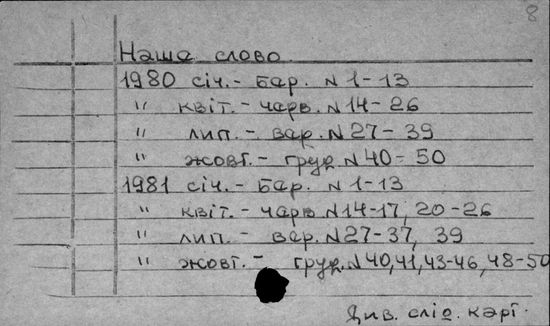 8
Наше слово
1980 січ. - бар. N 1 - 13
" квіт. - чарв. N 14 - 26
" лип. - вар. N 27 - 39
" жовт. - груд. N 40 - 50
1981 січ. - бар. N 1 - 13
" квіт. - чарв N 14-17, 20-26
" лип. - вер. N 27-37, 39
" жовт. - груд. N 40,41,43-46,48-50
Див. слід. карт.